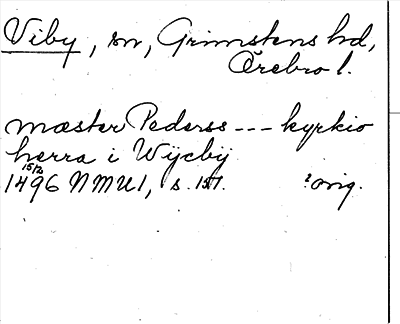 Viby, sn, Grimstens hd,
Örebro l.
mæster Pederss --- kyrkio
herra i Wijcby
15/2
1496 NMU1, s. 157. ? orig.